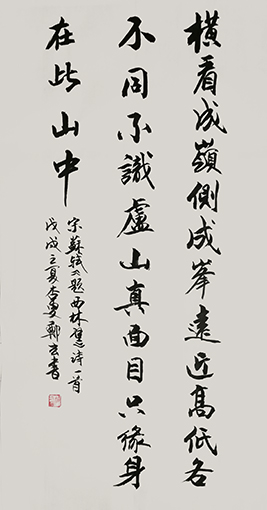 橫看成嶺側成峯遠近高低各
不同不識廬山真面目只緣身
在此山中
宋蘇軾題西林壁詩一首
戊戌之夏李